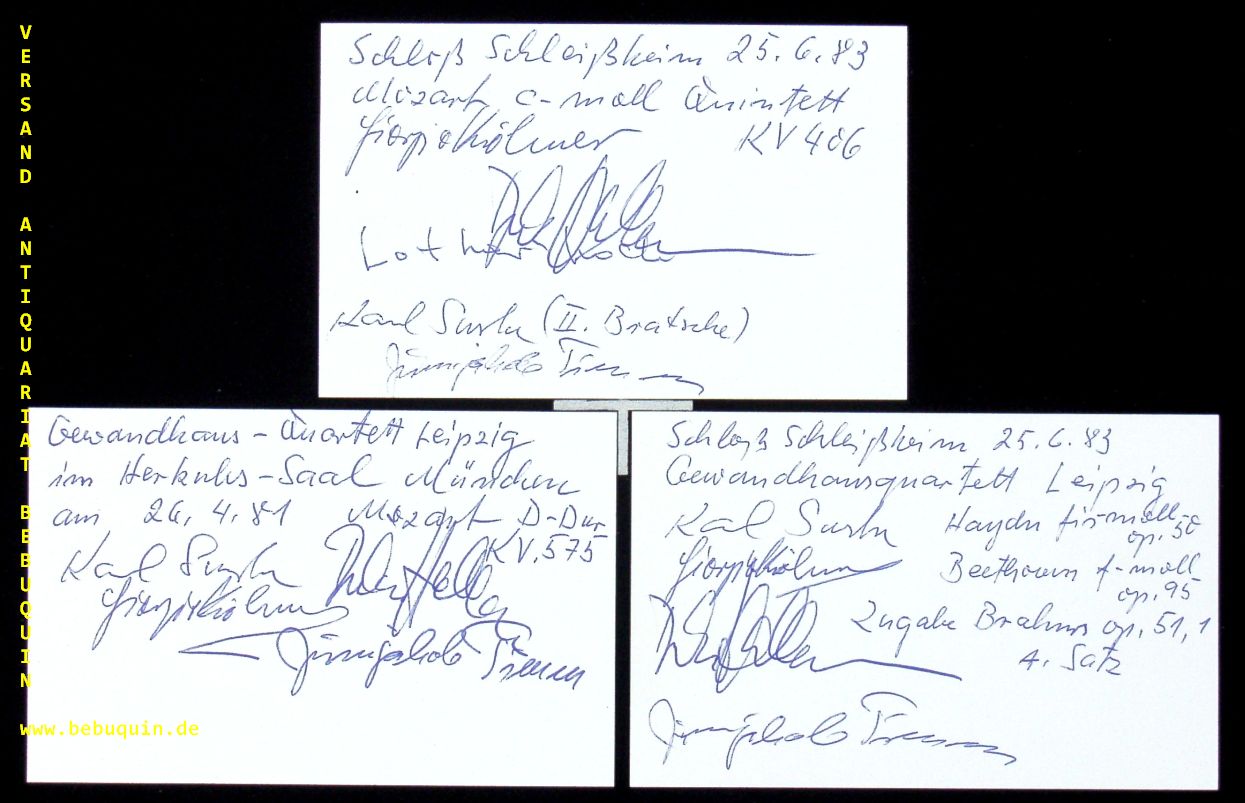 VERSAND ANTIQUARIAT BEBUQUIN
www.bebuquin.de
Schloß Schleißheim 25.6.83
Mozart c-moll Quintett
Giorgio Kröhner KV 406
Lothar
Karl Suske (II. Bratsche)
Jürnjakob Timm
Gewandhaus-Quartett Leipzig
im Herkules-Saal München
am 26.4.81 Mozart D-Dur
KV. 575
Karl Suske
Giorgio Kröhner
Jürnjakob Timm
Schloß Schleißheim 25.6.83
Gewandhausquartett Leipzig
Karl Suske Haydn fis-moll
op. 50
Giorgio Kröhner Beethoven f-moll
op. 95
Zugabe Brahms op. 51, 1
4. Satz
Jürnjakob Timm